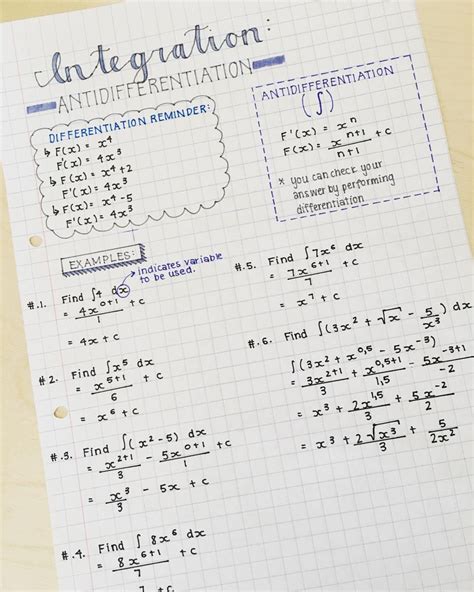 Integration:
ANTIDIFFERENTIATION
DIFFERENTIATION REMINDER:
↳ F(x) = x⁴
F'(x) = 4x³
↳ F(x) = x⁴+2
F'(x) = 4x³
↳ F(x) = x⁴-5
F'(x) = 4x³
ANTIDIFFERENTIATION
(∫)
F'(x) = xⁿ
F(x) = xⁿ⁺¹/n+1 + c
* you can check your
answer by performing
differentiation
EXAMPLES:
indicates variable
to be used.
#.1. Find ∫4 dx
= 4x⁰⁺¹/1 + c
= 4x + c
#2. Find ∫x⁵ dx
= x⁵⁺¹/6
= x⁶ + c
#.3. Find ∫(x²-5) dx
= x²⁺¹/3 - 5x⁰⁺¹/1 + c
= x³/3 - 5x + c
#.4. Find ∫ 8x⁶ dx
= 8x⁶⁺¹/7 + c
#.5. Find ∫7x⁶ dx
= 7x⁶⁺¹/7 + c
= x⁷ + c
#.6. Find ∫(3x² + √x - 5/x³) dx
∫(3x² + x^0,5 - 5x⁻³)
= 3x²⁺¹/3 + x^0,5+1/1,5 - 5x^-3+1/-2
= x³ + 2x^1,5/3 + 5x⁻²/2
= x³ + 2√x³/3 + 5/2x²